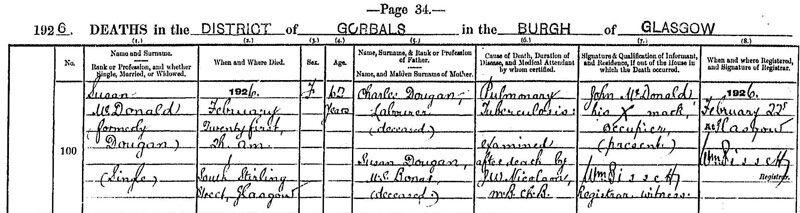 —Page 34.—
1926. DEATHS in the DISTRICT of GORBALS in the BURGH of GLASGOW
(1.) (2.) (3.) (4.) (5.) (6.) (7.) (8.)
No.
Name and Surname.
Rank or Profession, and whether
Single, Married, or Widowed.
When and Where Died.
Sex.
Age.
Name, Surname, & Rank or Profession
of Father.
Name, and Maiden Surname of Mother.
Cause of Death, Duration of
Disease, and Medical Attendant
by whom certified.
Signature & Qualification of Informant,
and Residence, if out of the House in
which the Death occurred.
When and where Registered,
and Signature of Registrar.
100
Susan
McDonald
(formerly
Dougan)
(Single)
1926.
February
Twenty first,
2h. a.m.
South Stirling
Street, Glasgow
F
67
years
Charles Dougan,
Labourer
(deceased)
Susan Dougan,
M.S.
(deceased)
Pulmonary
Tuberculosis:
examined
after death by
J.W. Nicolson,
M.B. Ch.B.
John McDonald
his X mark,
occupier,
(present)
Wm Bissett
Registrar. witness.
1926.
February 22d
at Glasgow
Wm Bissett
Registrar.